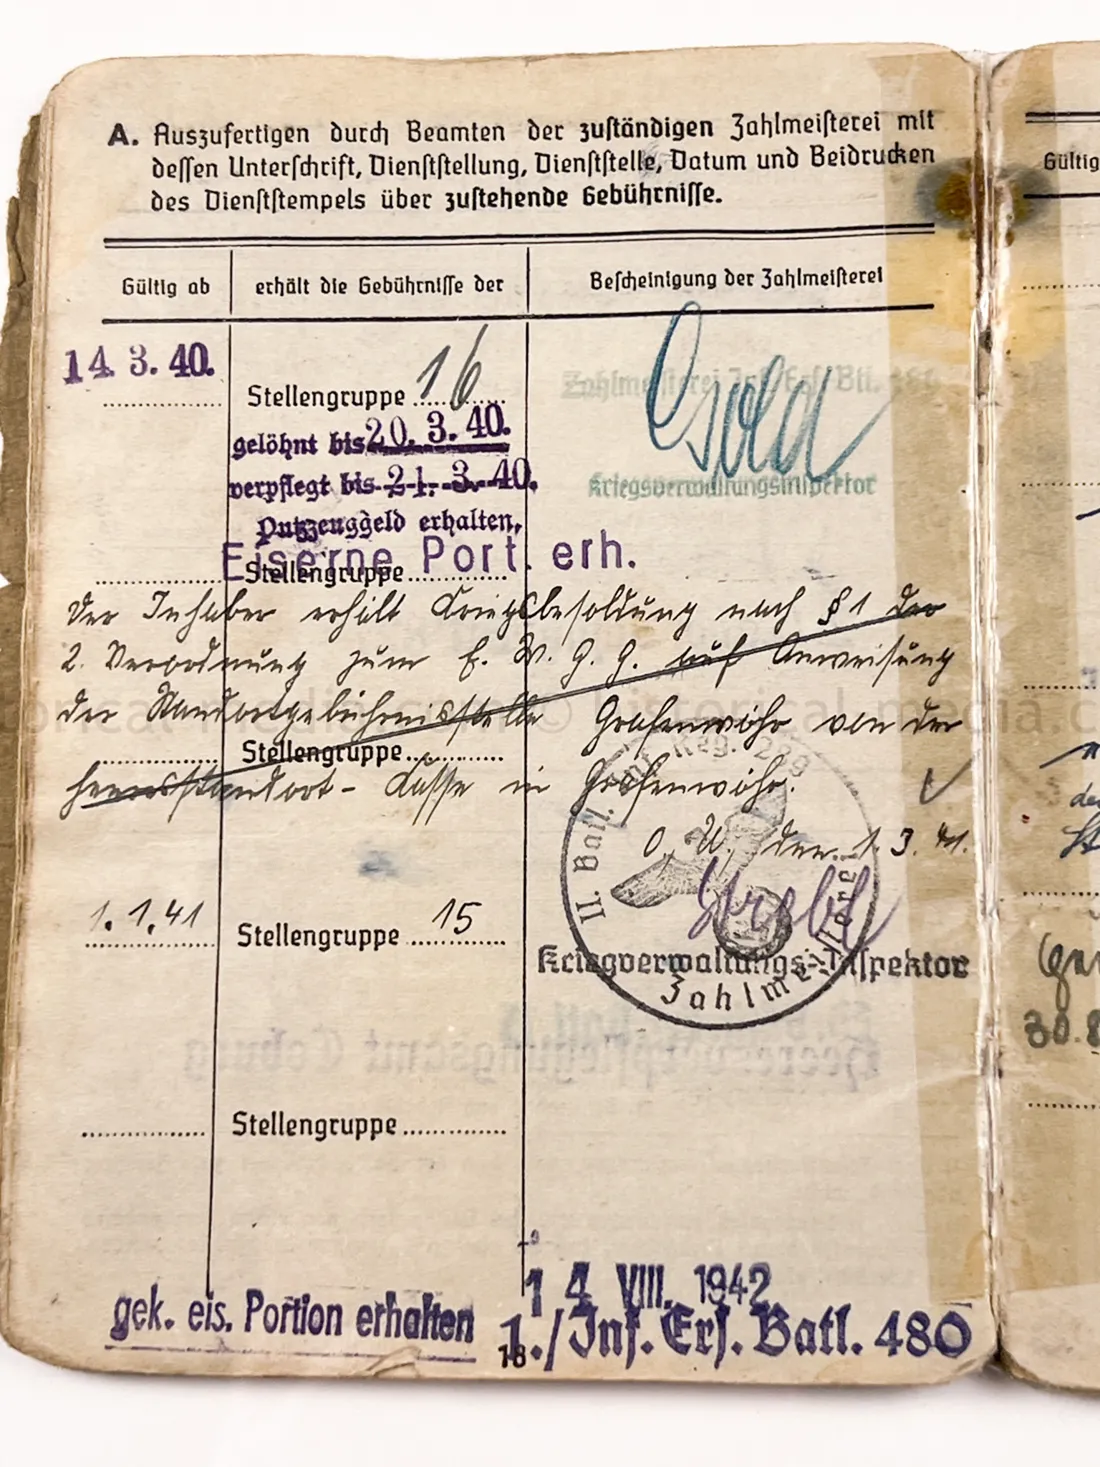 A. Auszufertigen durch Beamten der zuständigen Zahlmeisterei mit
dessen Unterschrift, Dienststellung, Dienststelle, Datum und Beidrucken
des Dienststempels über zustehende Gebührnisse.
Gültig ab
erhält die Gebührnisse der
Bescheinigung der Zahlmeisterei
14. 3. 40.
Stellengruppe 16
Zahlmeisterei Inf. Ers. Btl.
gelöhnt bis 20. 3. 40.
verpflegt bis 21. 3. 40.
Kriegsverwaltungsinspektor
Putzzeuggeld erhalten,
Eiserne Port. erh.
Stellengruppe
Der Inhaber erhält Kriegsbesoldung nach § 1 der
2. Verordnung zum E. W. G. G. auf Anweisung
der Standortgebührnisstelle Grafenwöhr von der
Stellengruppe
Heeresstandort-Kasse in Grafenwöhr.
O. U., den 1. 3. 41.
II. Batl. Inf. Reg.
Zahlmeisterei
1. 1. 41
Stellengruppe 15
Kriegverwaltungs-Inspektor
Stellengruppe
14. VIII. 1942
gek. eis. Portion erhalten
1./Inf. Ers. Batl. 480
18
Gültig
30.8